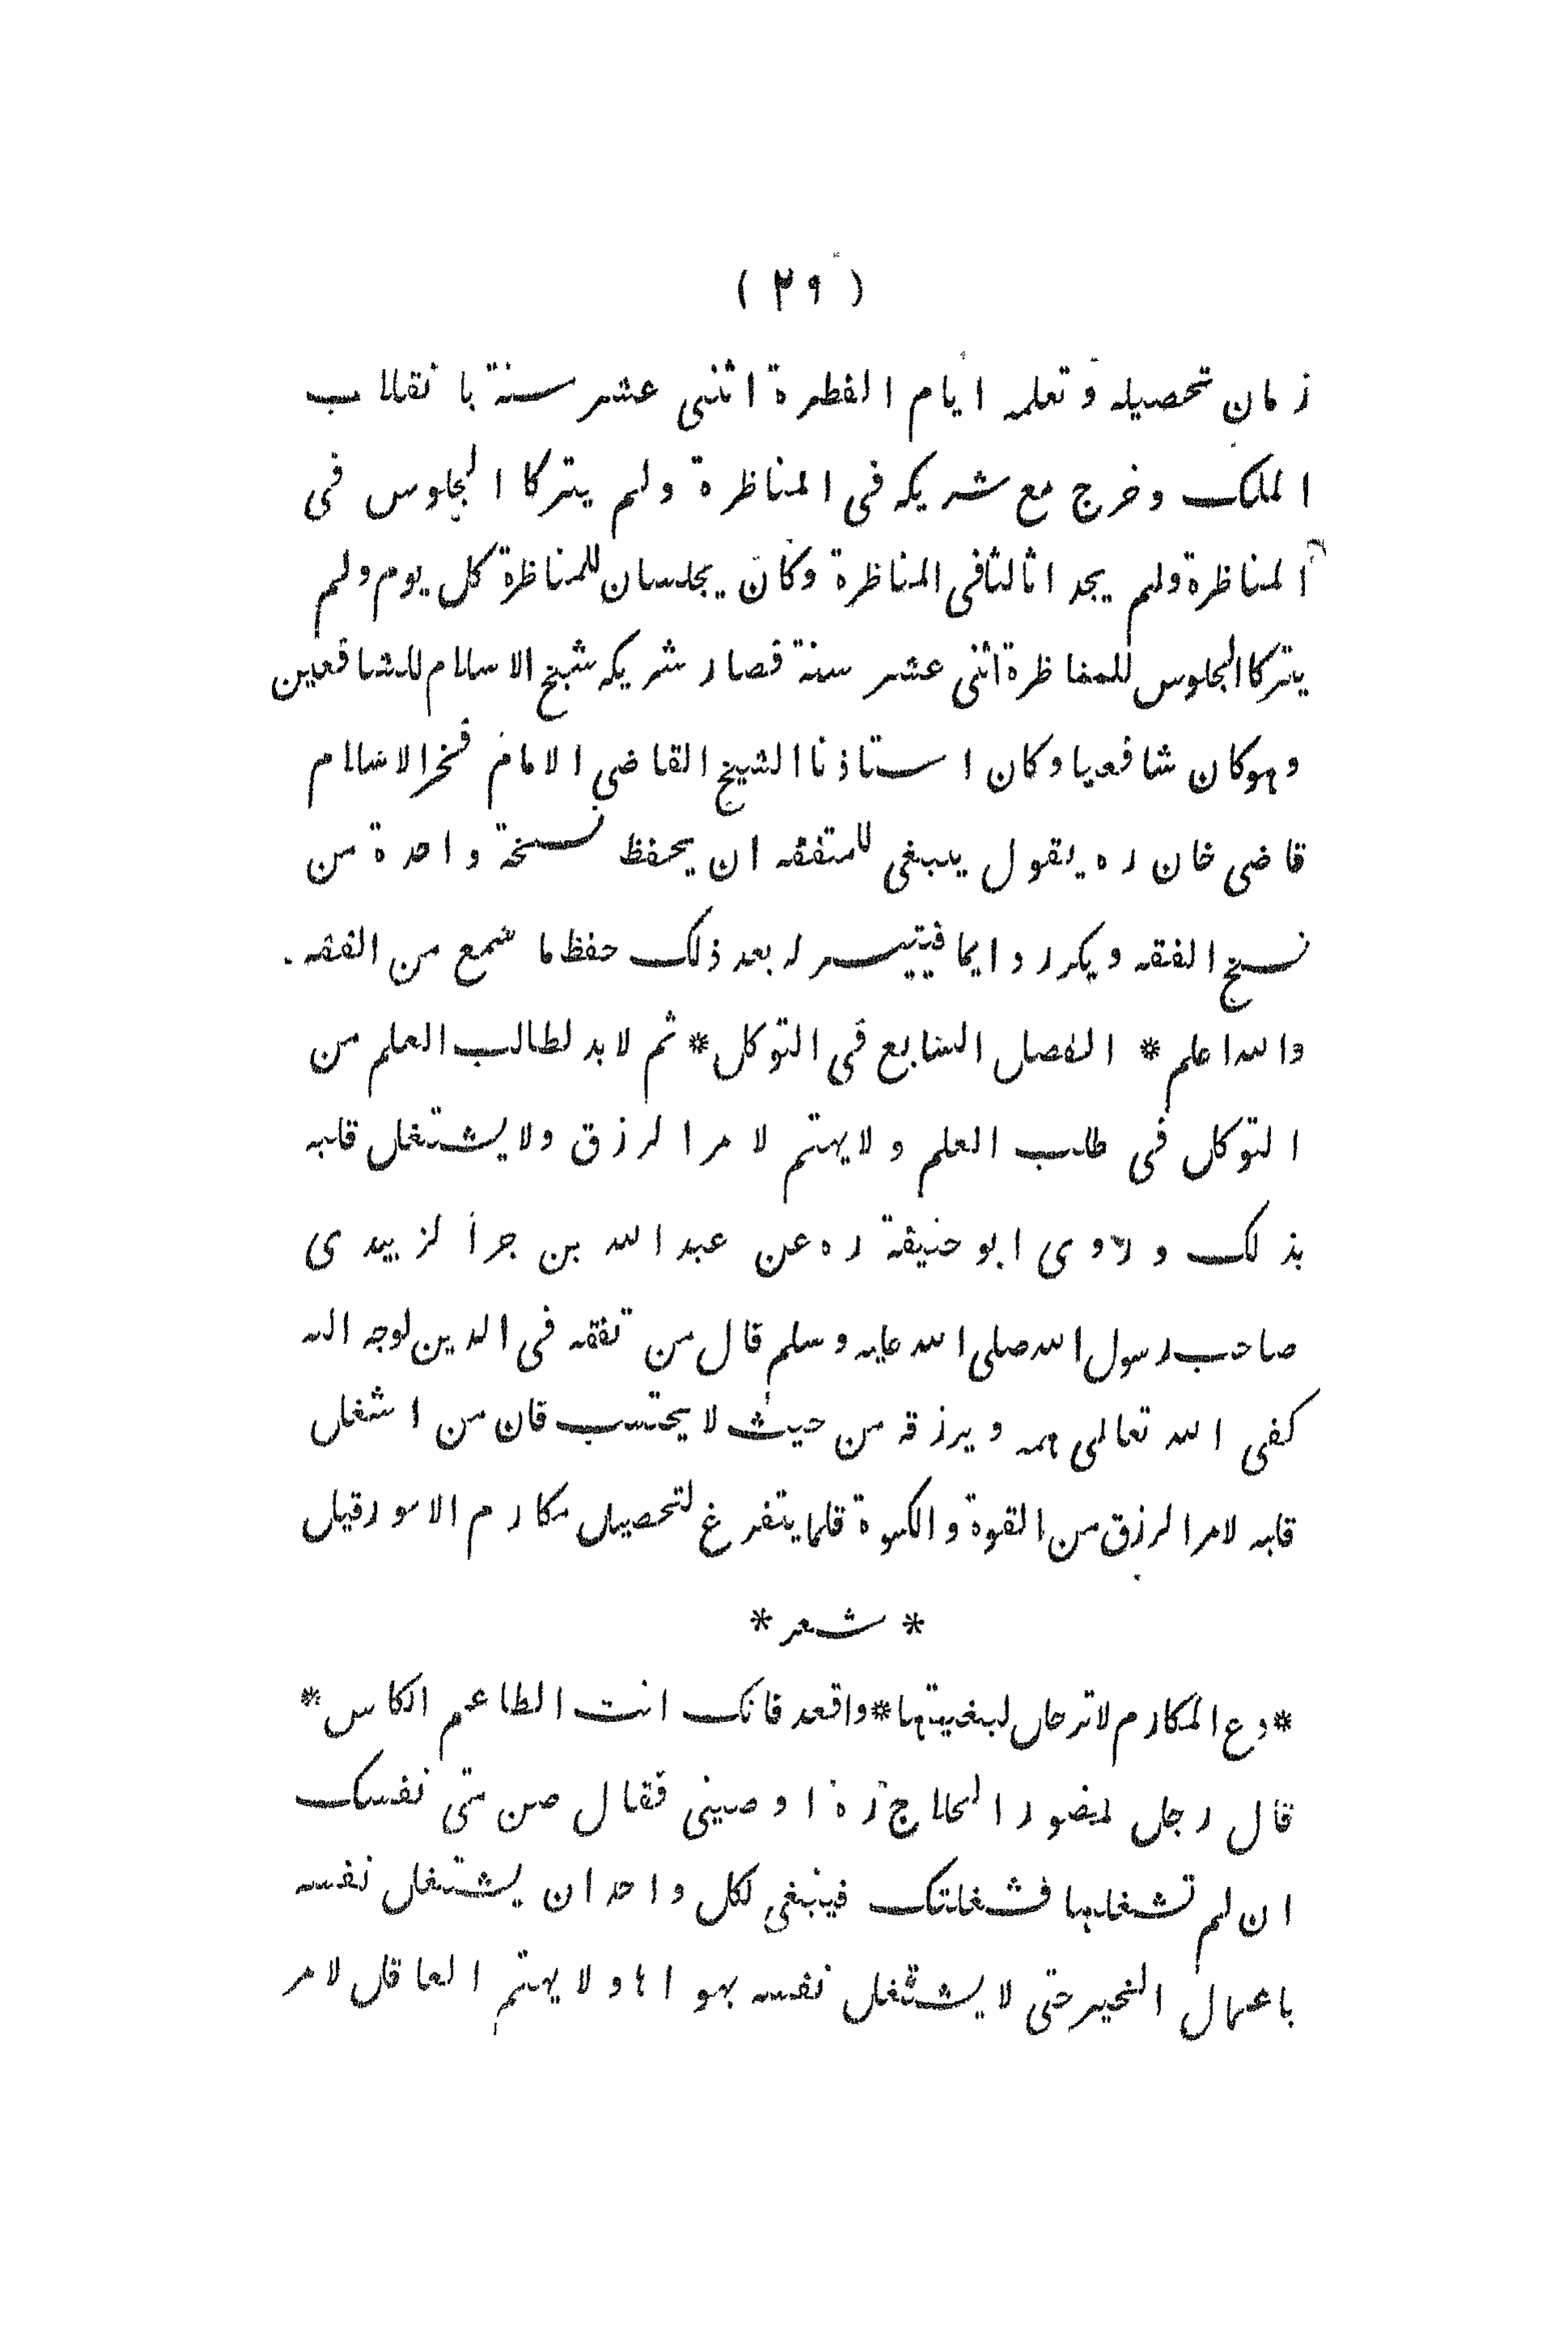 ( ٢٩ )
زمان تحصيله و تعلمه ايام الفطرة اثنى عشر سنة بانقلاب
الملك وخرج مع شريكه فى المناظرة ولم يتركا الجلوس فى
المناظرة ولم يجدا ثالثا فى المناظرة وكان يجلسان للمناظرة كل يوم ولم
يتركا الجلوس للمناظرة اثنى عشر سنة فصار شريكه شيخ الاسلام للشافعين
وهو كان شافعيا وكان استاذنا الشيخ القاضى الامام فخر الاسلام
قاضى خان ره يقول ينبغى للمتفقه ان يحفظ نسخة واحدة من
نسخ الفقه ويكرر دايما فيتيسر له بعد ذلك حفظ ما سمع من الفقه .
والله اعلم * الفصل السابع فى التوكل * ثم لابد لطالب العلم من
التوكل فى طلب العلم ولا يهتم لامر الرزق ولا يشتغل قلبه
بذلك وروى ابو حنيفة ره عن عبد الله بن جرأ لزبيدى
صاحب رسول الله صلى الله عليه وسلم قال من تفقه فى الدين لوجه الله
كفى الله تعالى همه ويرزقه من حيث لا يحتسب فان من اشغل
قلبه لامر الرزق من القوة والكسوة قلما يتفرغ لتحصيل مكارم الامور قيل
* شعر *
* دع المكارم لا ترحل لبغيتها * واقعد فانك انت الطاعم الكاس *
قال رجل لمنصور الحلاج ره اوصينى فقال صن متى نفسك
ان لم تشغلها فشغلتك فينبغى لكل واحد ان يشتغل نفسه
باعمال الخير حتى لا يشتغل نفسه بهواها ولا يهتم العاقل لامر